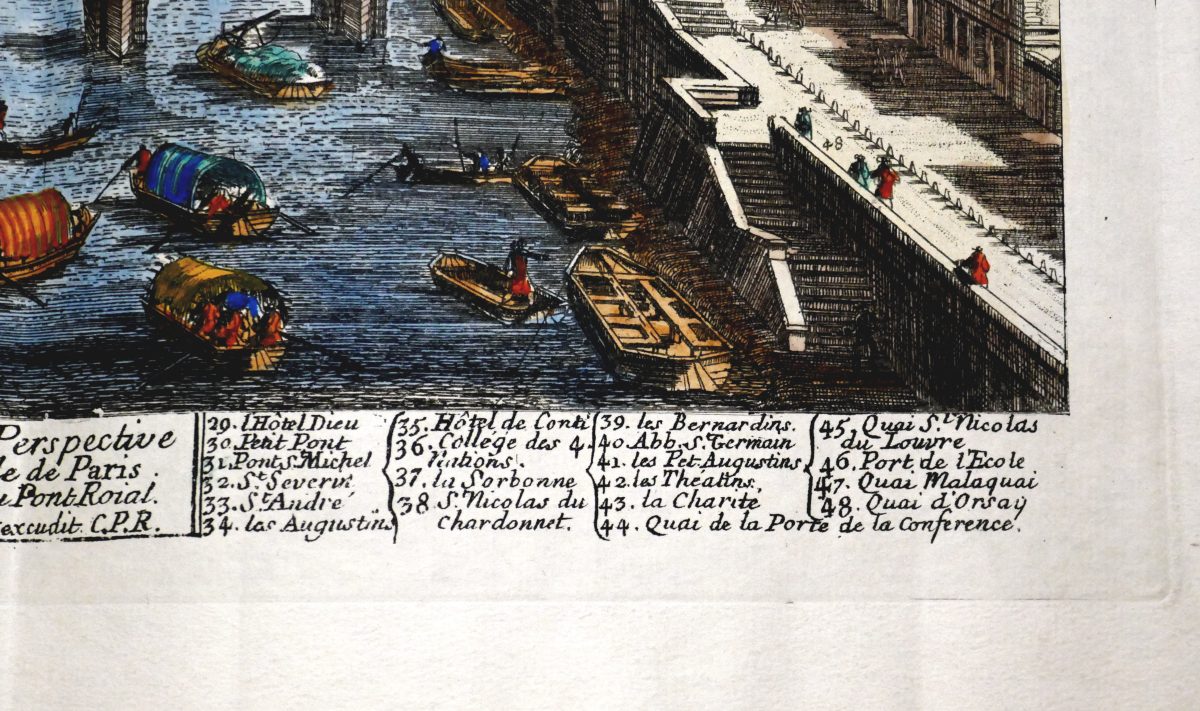 48
Perspective
le de Paris.
u Pont Roial.
excudit. C.P.R.
29. l'Hôtel Dieu
30. Petit Pont
31. Pont S.t Michel
32. S.t Severin
33. S.t André
34. les Augustins
35. Hôtel de Conti
36. Collége des 4.
Nations.
37. la Sorbonne
38. S.t Nicolas du
Chardonnet.
39. les Bernardins.
40. Abb. S.t Germain
41. les Pet. Augustins
42. les Theatins.
43. la Charité
44. Quai de la Porte de la Conference.
45. Quai S.t Nicolas
du Louvre
46. Port de l'Ecole
47. Quai Malaquai
48. Quai d'Orsay